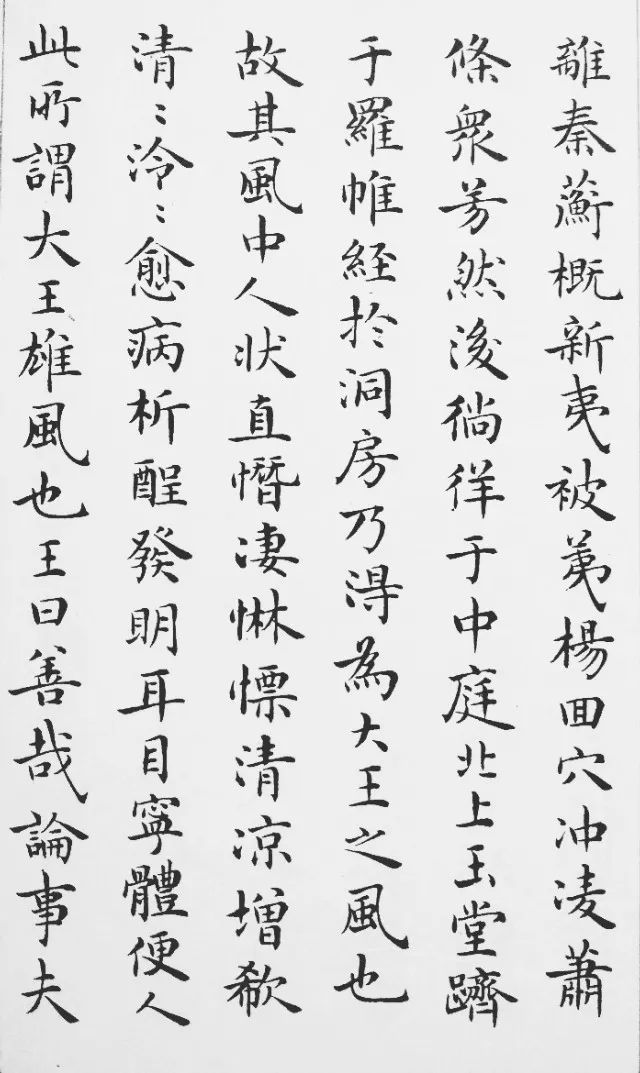 離秦蘅概新夷被荑楊回穴冲凌蕭
條衆芳然後徜徉于中庭北上玉堂躋
于羅帷經於洞房乃得為大王之風也
故其風中人狀直憯凄惏慄清凉增欷
清〻泠〻愈病析酲發明耳目寧體便人
此所謂大王雄風也王曰善哉論事夫